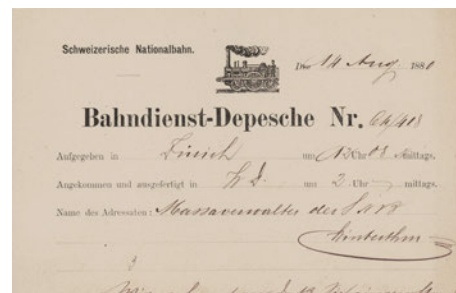 Schweizerische Nationalbahn.
Den 14 Aug. 1880
Bahndienst-Depesche Nr.
Aufgegeben in Zürich um 12 Uhr 03 Mittags.
Angekommen und ausgefertigt in um 2 Uhr mittags.
Name des Adressaten: Massaverwalter der SNB
Winterthur
3